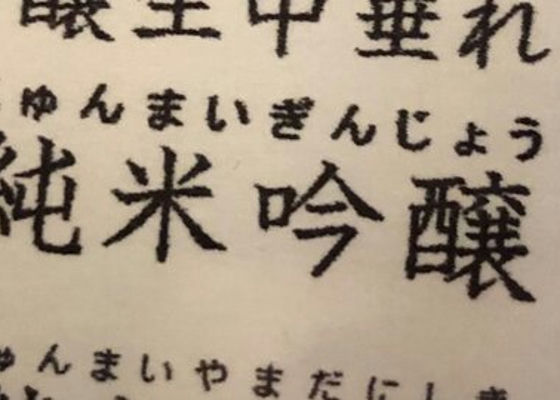 醸生中垂れ
ゅんまいぎんじょう
純米吟醸
ゅんまいやまだにしき